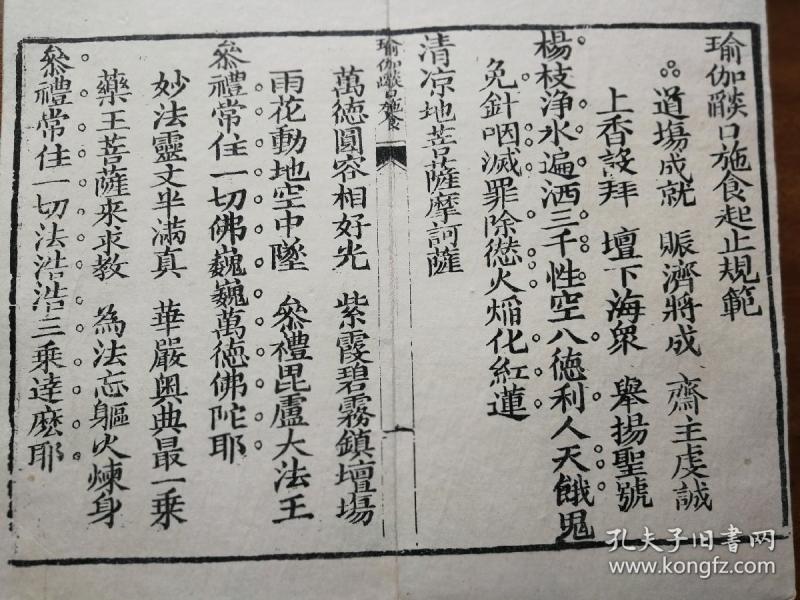 瑜伽燄口施食起止規範
道場成就 賑濟將成 齋主虔誠
上香設拜 壇下海衆 舉揚聖號
楊枝浄水遍洒三千性空八徳利人天餓鬼
免針咽滅罪除愆火焰化紅蓮
清凉地菩薩摩訶薩
瑜伽燄口施食
一
萬德圓容相好光 紫霞碧霧鎮壇場
雨花動地空中墜 叅禮毘盧大法王
叅禮常住一切佛巍巍萬徳佛陀耶
妙法靈文半滿真 華嚴奥典最一乘
藥王菩薩来求教 為法忘軀火煉身
叅禮常住一切法浩浩三乘達麽耶
孔夫子旧书网
www.kongfz.com